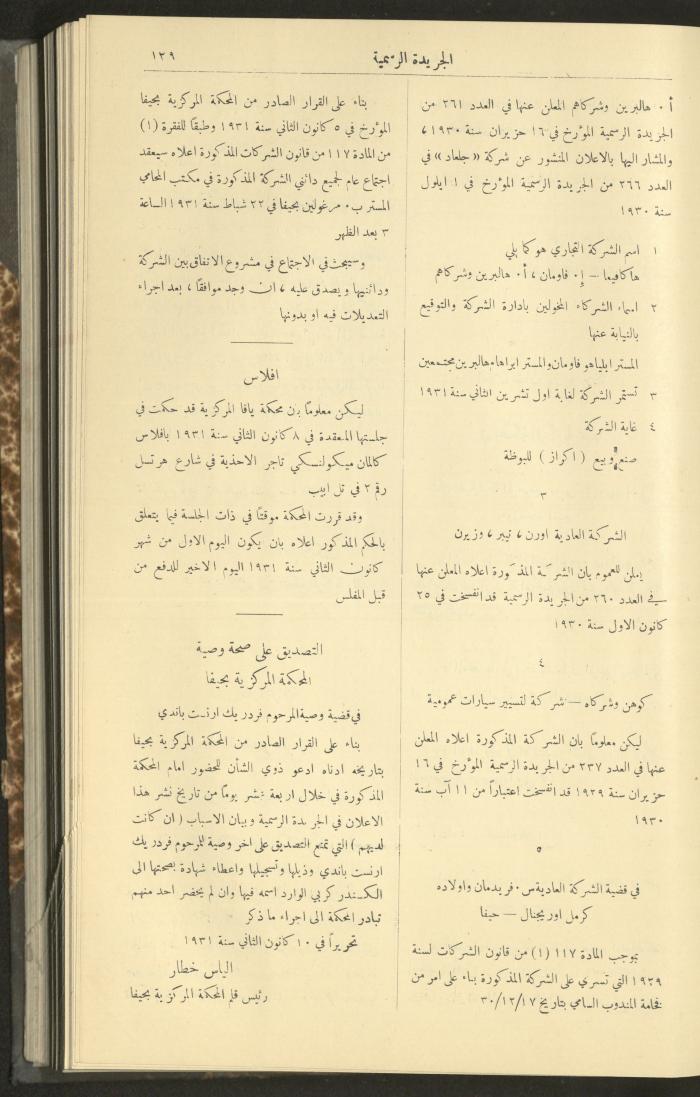 الجريدة الرسمية
١٣٩
أ ٠ هالبرين وشركاهم المعلن عنها في العدد ٢٦١ من
الجريدة الرسمية المؤرخ في ١٦ حزيران سنة ١٩٣٠ ،
والمشار اليها بالاعلان المنشور عن شركة «جلعاد» في
العدد ٢٦٦ من الجريدة الرسمية المؤرخ في ١ ايلول
سنة ١٩٣٠
١ اسم الشركة التجاري هو كما يلي
هاكافيما — إ٠ فاومان ، أ٠ هالبرين وشركاهم
٢ اسماء الشركاء المخولين بادارة الشركة والتوقيع
بالنيابة عنها
المستر ايلياهو فاومان والمستر ابراهام هالبرين مجتمعين
٣ تستمر الشركة لغاية اول تشرين الثاني سنة ١٩٣١
٤ غاية الشركة
صنع وبيع ( اكراز ) للبوظة
٣
الشركة العادية اورن ، تيبر ، وزيرن
يعلن للعموم بان الشركة المذكورة اعلاه المعلن عنها
في العدد ٢٦٠ من الجريدة الرسمية قد انفسخت في ٢٥
كانون الاول سنة ١٩٣٠
٤
كوهن وشركاه — شركة لتسيير سيارات عمومية
ليكن معلومًا بان الشركة المذكورة اعلاه المعلن
عنها في العدد ٢٣٧ من الجريدة الرسمية المؤرخ في ١٦
حزيران سنة ١٩٢٩ قد انفسخت اعتباراً من ١١ آب سنة
١٩٣٠
٥
في قضية الشركة العادية س٠ فريدمان واولاده
كرمل اوريجنال — حيفا
بموجب المادة ١١٧ (١) من قانون الشركات لسنة
١٩٢٩ التي تسري على الشركة المذكورة بناء على امر من
فخامة المندوب السامي بتاريخ ٣٠/١٢/١٧
بناء على القرار الصادر من المحكمة المركزية بحيفا
المؤرخ في ٥ كانون الثاني سنة ١٩٣١ وطبقًا للفقرة (١)
من المادة ١١٧ من قانون الشركات المذكورة اعلاه سيعقد
اجتماع عام لجميع دائني الشركة المذكورة في مكتب المحامي
المستر ب٠ مرغولين بحيفا في ٢٢ شباط سنة ١٩٣١ الساعة
٣ بعد الظهر
وسيبحث في الاجتماع في مشروع الاتفاق بين الشركة
ودائنيها ويصدق عليه ، ان وجد موافقًا ، بعد اجراء
التعديلات فيه او بدونها
افلاس
ليكن معلومًا بان محكمة يافا المركزية قد حكمت في
جلستها المنعقدة في ٨ كانون الثاني سنة ١٩٣١ بافلاس
كالمان ميكولنسكي تاجر الاحذية في شارع هرتسل
رقم ٢ في تل ابيب
وقد قررت المحكمة موقتًا في ذات الجلسة فيما يتعلق
بالحكم المذكور اعلاه بان يكون اليوم الاول من شهر
كانون الثاني سنة ١٩٣١ اليوم الاخير للدفع من
قبل المفلس
التصديق على صحة وصية
المحكمة المركزية بحيفا
في قضية وصية المرحوم فردريك ارنست باندي
بناء على القرار الصادر من المحكمة المركزية بحيفا
بتاريخه ادناه ادعو ذوي الشأن للحضور امام المحكمة
المذكورة في خلال اربعة عشر يومًا من تاريخ نشر هذا
الاعلان في الجريدة الرسمية وبيان الاسباب ( ان كانت
لديهم ) التي تمنع التصديق على آخر وصية للمرحوم فردريك
ارنست باندي وذيلها وتسجيلها واعطاء شهادة بصحتها الى
الكسندر كربي الوارد اسمه فيها وان لم يحضر احد منهم
تبادر المحكمة الى اجراء ما ذكر
تحريراً في ١٠ كانون الثاني سنة ١٩٣١
الياس خطار
رئيس قلم المحكمة المركزية بحيفا